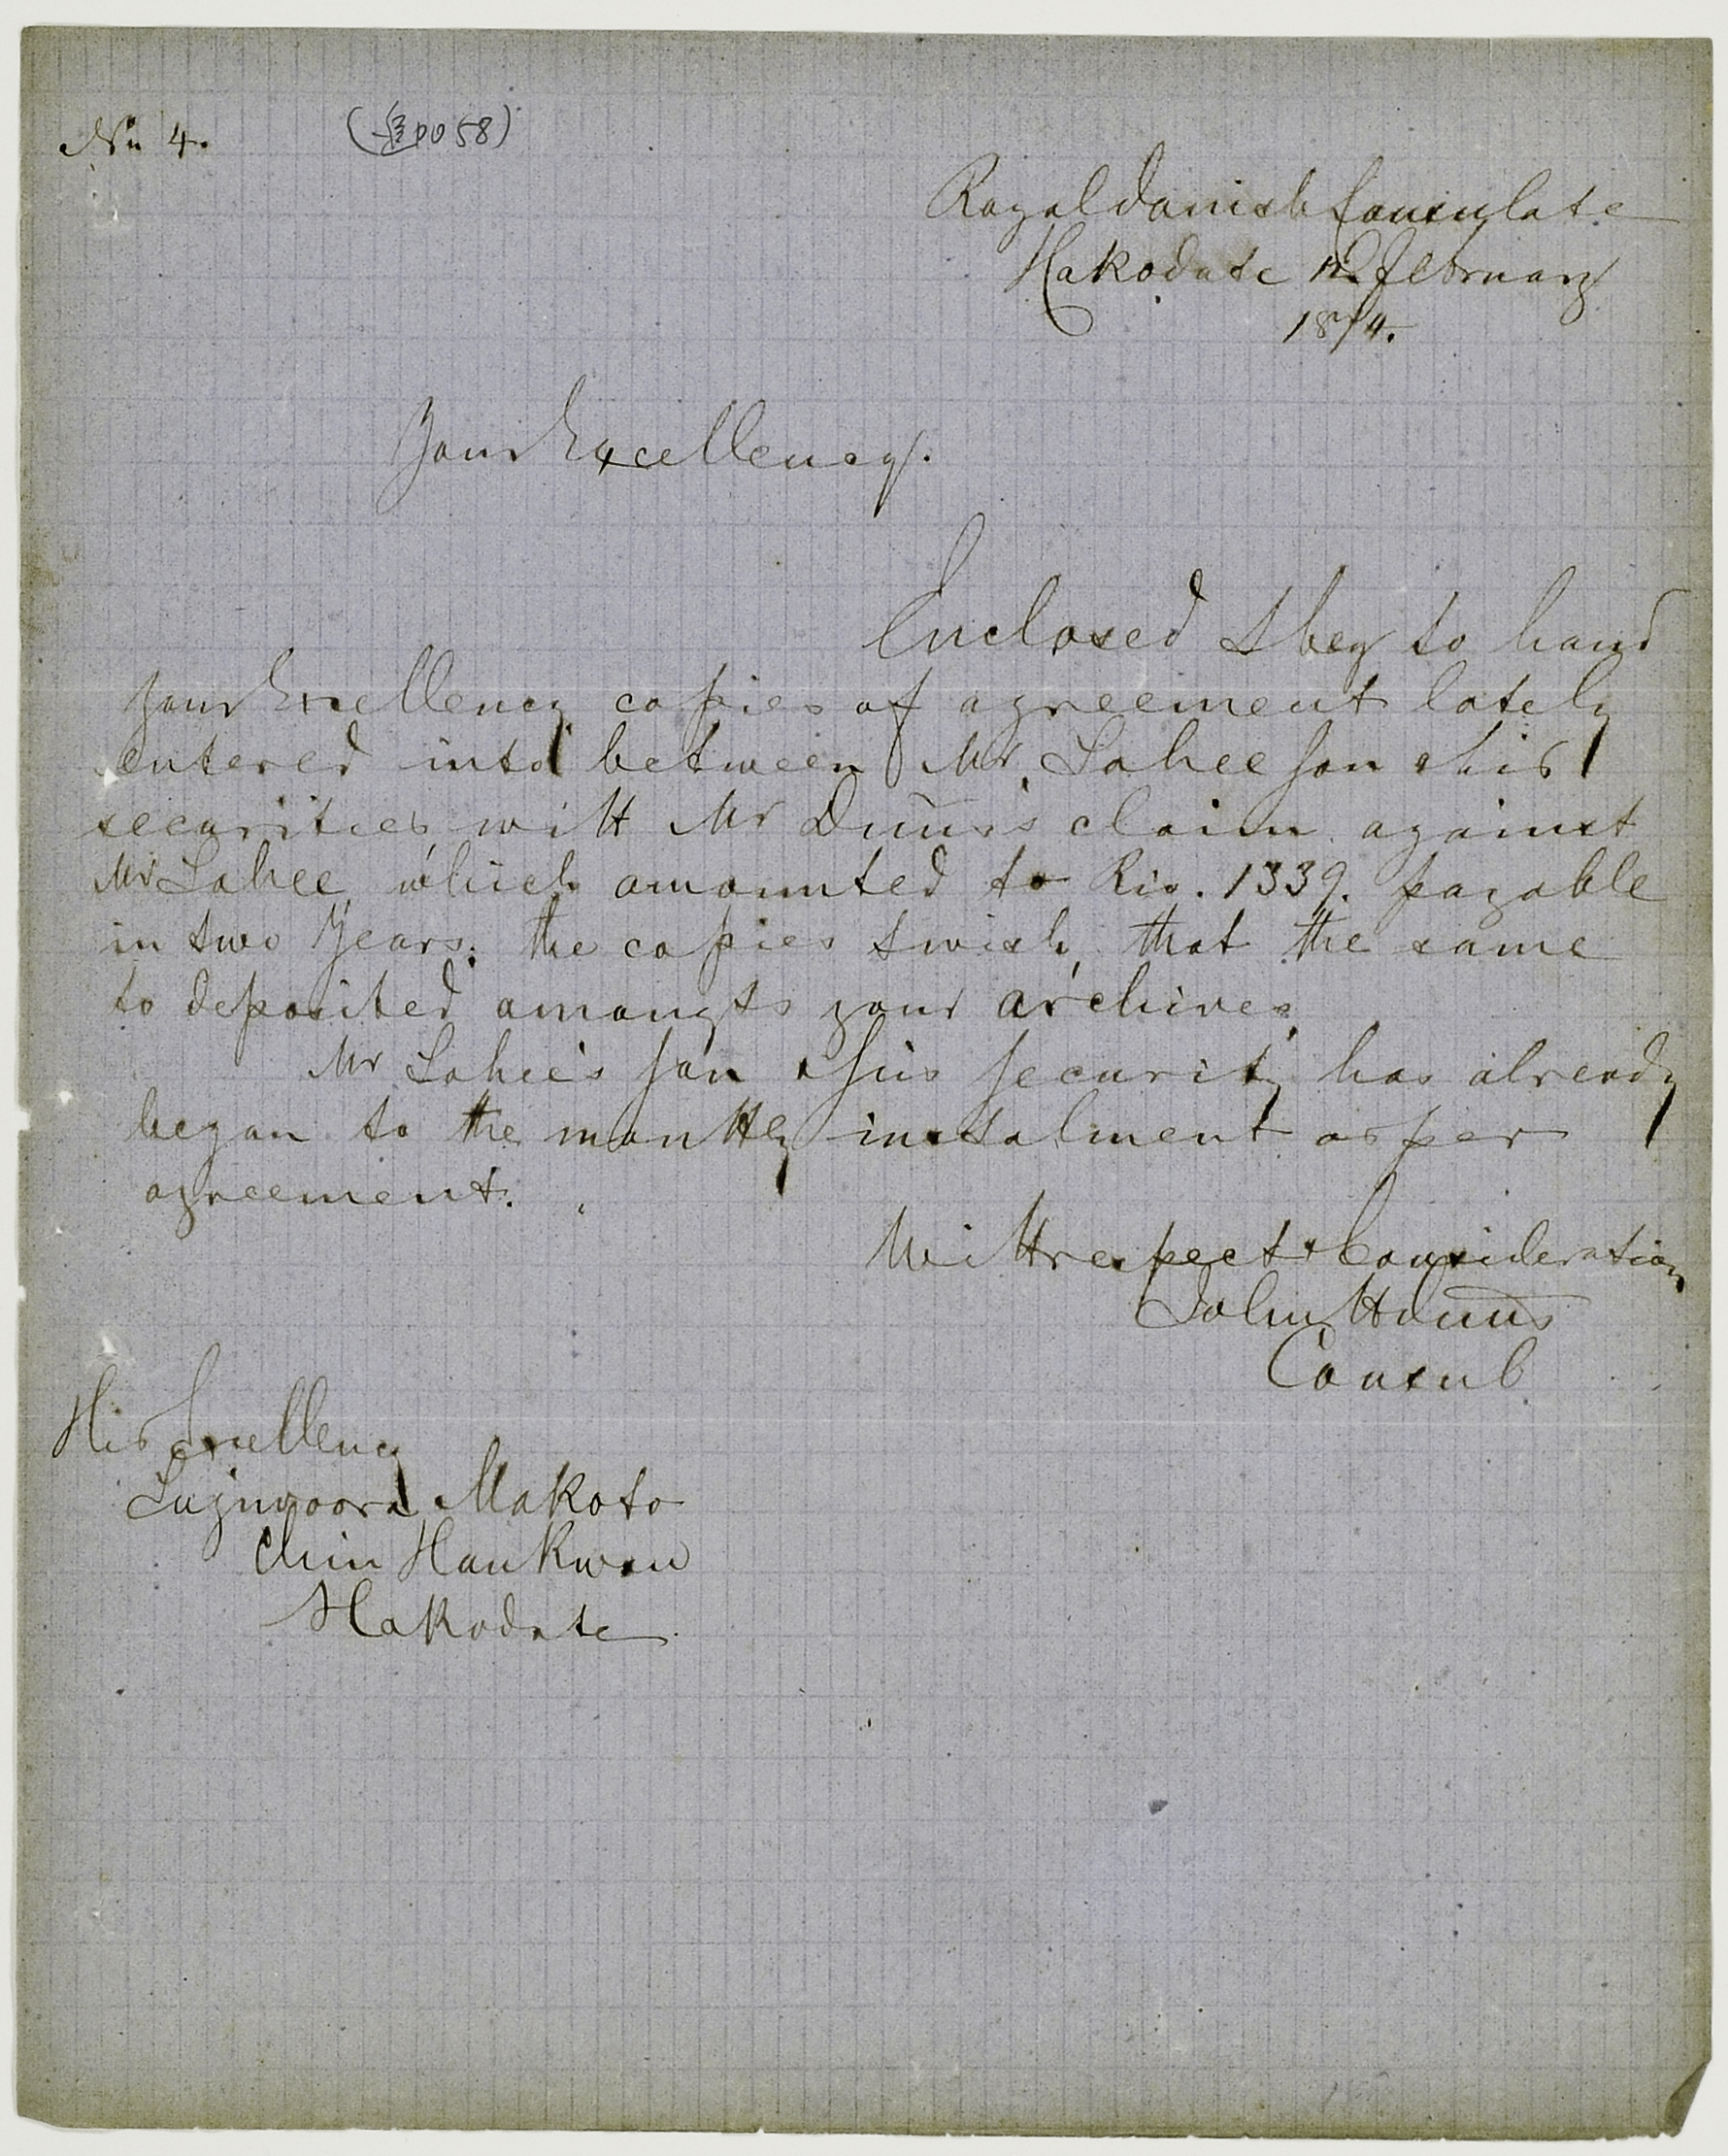 No 4.
0058
Royal Danish Consulate
Hakodate 12 February
1874.
Your Excellency.
Enclosed I beg to hand
your Excellency copies of agreement lately
entered into between Mr. Sohee Son & his
securities with Mr Duus's claim against
Mr Sohee which amounted to Rio. 1339. payable
in two Years: the copies I wish, that the same
to deposited amongts your archives
Mr Sohee's Son & his Security has already
began to the monthly instalment as per
agreement.
With respect & Consideration
John H Duus
Consul
His Excellency
Makoto
Hakodate